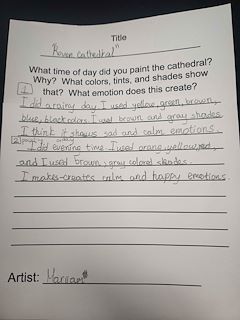 Title
"Roven Cathedral"
What time of day did you paint the cathedral?
Why? What colors, tints, and shades show
that? What emotion does this create?
1
I did a rainy day. I used yellow, green, brown,
blue, black colors. I use brown and gray shades.
I think it shows sad and calm emotions.
2
I did evening time. I used orang, yellow, red,
and I used brown, gray colored shades.
I makes-creates calm and happy emotions.
Artist: Mariam